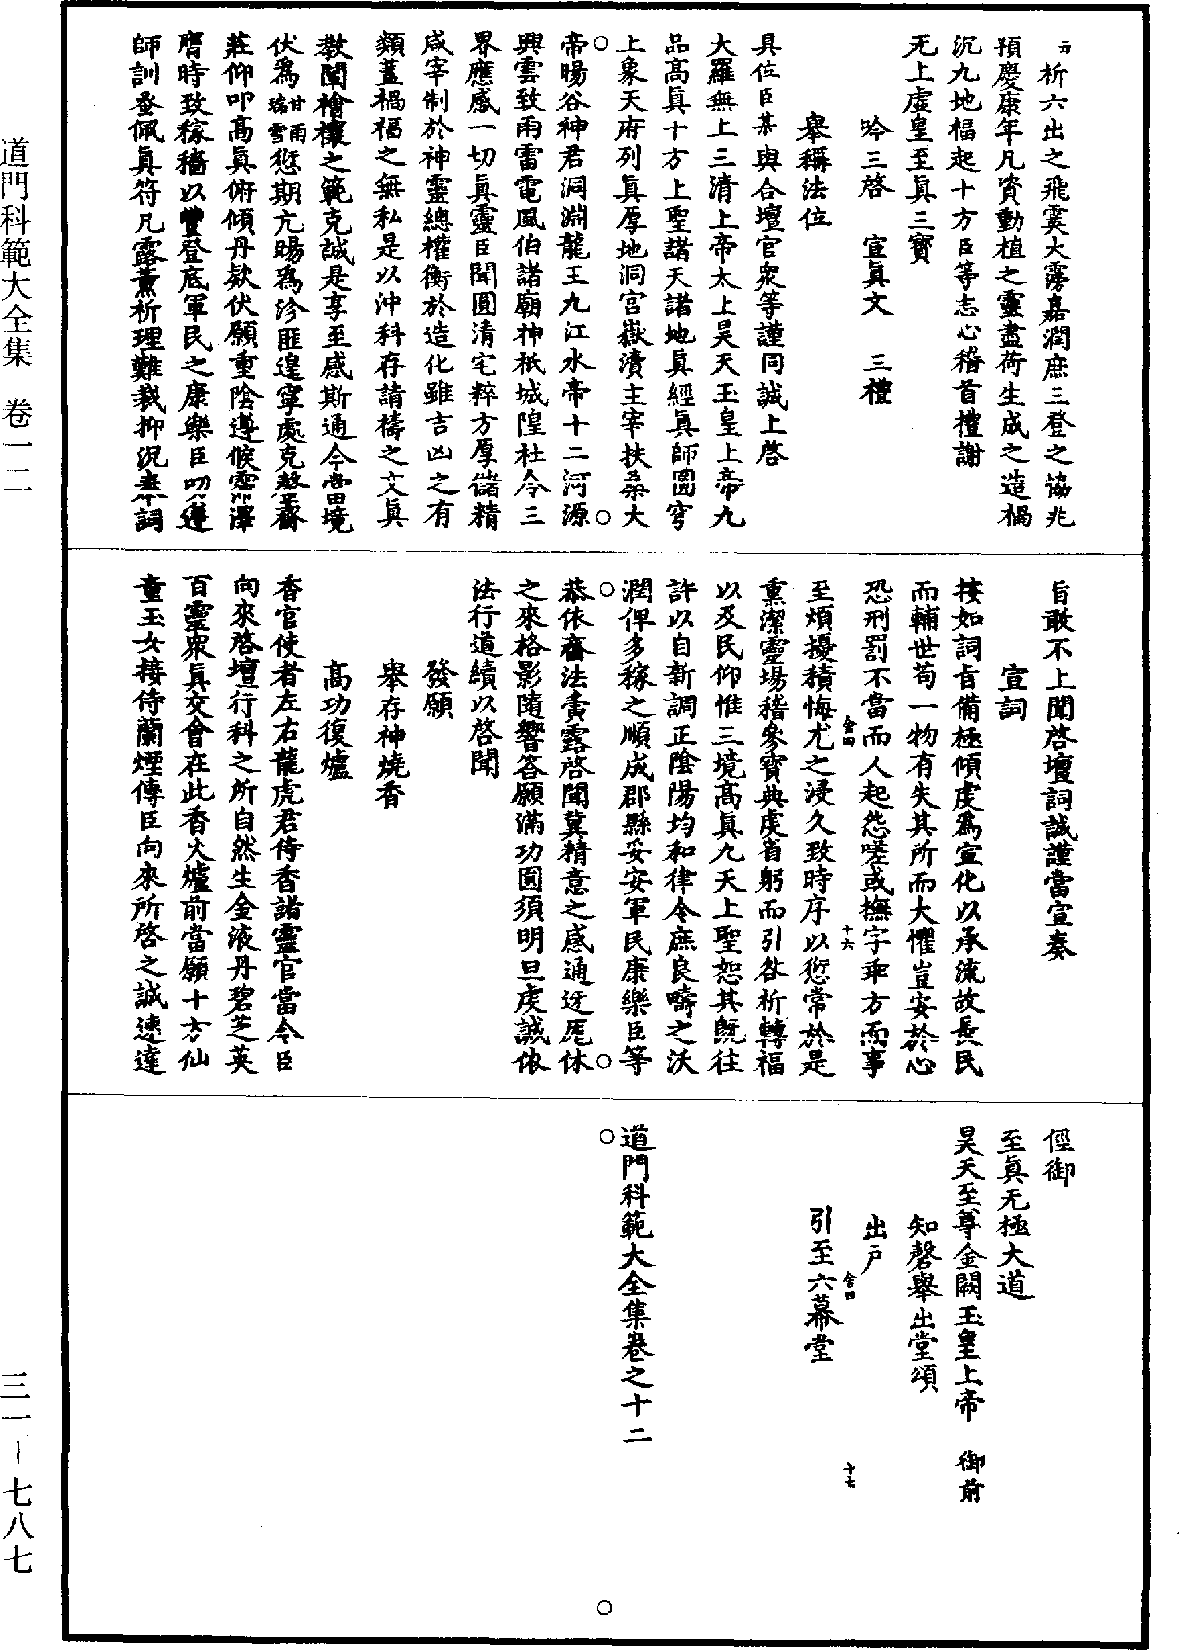 祈六出之飛霙大霶嘉潤庶三登之協兆
預慶康年凡資動植之靈盡荷生成之造禍
沉九地福起十方臣等志心稽首禮謝
无上虛皇至真三寶
吟三啓　宣真文　三禮
舉稱法位
具位臣某與合壇官衆等謹同誠上啓
大羅無上三清上帝太上昊天玉皇上帝九
品高真十方上聖諸天諸地真經真師圓穹
上象天府列真厚地洞宮嶽瀆主宰扶桑大
帝暘谷神君洞淵龍王九江水帝十二河源
興雲致雨雷電風伯諸廟神祇城隍社令三
界應感一切真靈臣聞圓清宅粹方厚儲精
咸宰制於神靈總權衡於造化雖吉凶之有
類蓋禍福之無私是以沖科存請禱之文真
教闡禬禳之範克誠是享至感斯通今當境
伏爲甘雨瑞雪愆期亢暘爲沴匪遑寧處克欵齋
莊仰叩高真俯傾丹欵伏願重陰遵候霈澤
膺時致稼穡以豐登底軍民之康樂臣叨遵
師訓叅佩真符凡露薰祈理難裁抑況奉詞
旨敢不上聞啓壇詞誠謹當宣奏
宣詞
按如詞旨備極傾虔爲宣化以承流故長民
而輔世苟一物有失其所而大懼豈安於心
恐刑罰不當而人起怨嗟或撫字乖方而事
至煩擾積悔尤之浸久致時序以愆常於是
熏潔靈場稽參寶典虔省躬而引咎祈轉福
以及民仰惟三境高真九天上聖恕其既往
許以自新調正陰陽均和律令庶良疇之沃
潤俾多稼之順成郡縣妥安軍民康樂臣等
恭依齋法畫露啓聞冀精意之感通迓厖休
之來格影隨響答願滿功圓須明旦虔誠依
法行道續以啓聞
發願
舉存神燒香
高功復爐
香官使者左右龍虎君侍香諸靈官當令臣
向來啓壇行科之所自然生金液丹碧芝英
百靈衆真交會在此香火爐前當願十方仙
童玉女接侍蘭煙傳臣向來所啓之誠速達
徑御
至真无極大道
昊天至尊金闕玉皇上帝　御前
知磬舉出堂頌
出戶
引至六幕堂
道門科範大全集卷之十二
舍四
十六
舍四
十七
道門科範大全集　卷一二
三一－七八七